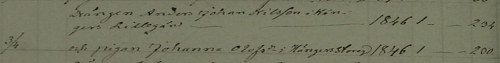 Drängen Anders Johan Nilsson i Hän-
gen Lillegård — 1846 1 — — 234
3/4 och pigan Johanna Olofsdr i Hängenstorp 1846 1 — — 200